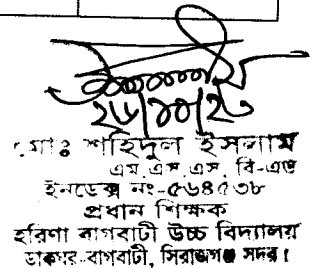 ২৬/১০/২৩
মোঃ শহিদুল ইসলাম
এম.এস.এস, বি-এড
ইনডেক্স নং-৫৬৪৫৩৮
প্রধান শিক্ষক
হরিণা বাগবাটী উচ্চ বিদ্যালয়
ডাকঘর-বাগবাটী, সিরাজগঞ্জ সদর।